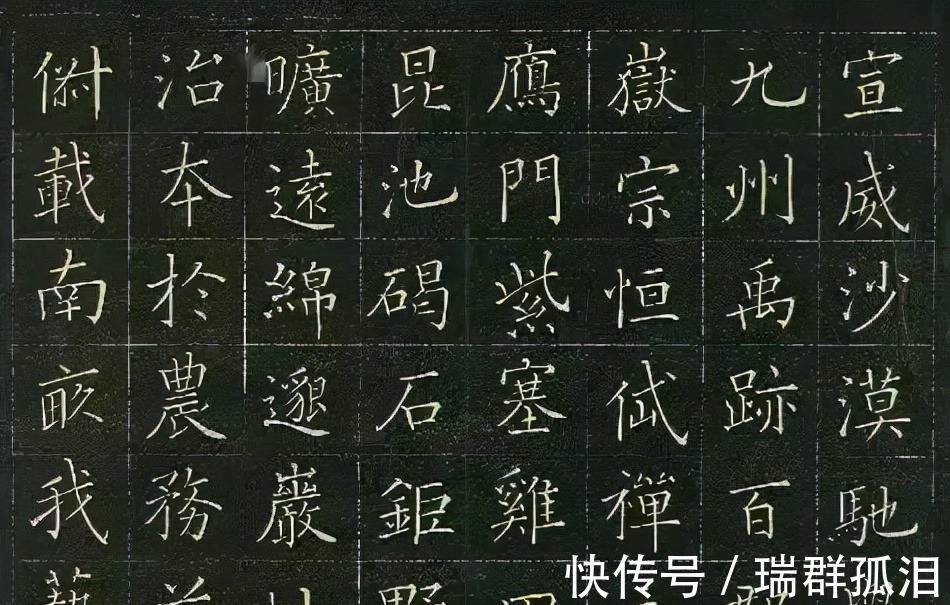 宣威沙漠馳
九州禹跡百
嶽宗恒岱禪
鴈門紫塞雞
昆池碣石鉅
曠遠綿邈巖
治本於農務
俶載南畝我
快传号 / 瑞群孤泪